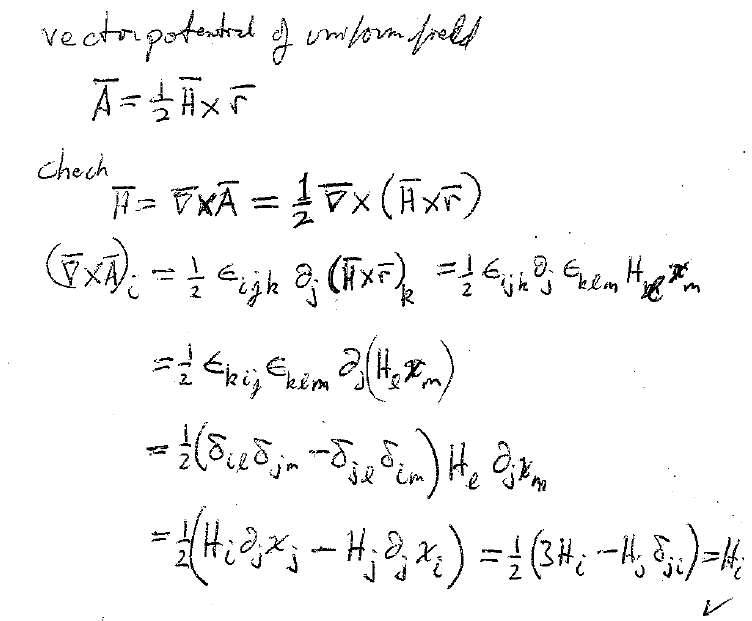 vector potential of uniform field
A̅ = ½ H̅ × r̅
Chech
H̅ = ∇̅ × A̅ = ½ ∇̅ × (H̅ × r̅)
(∇̅ × A̅)ᵢ = ½ ϵᵢⱼₖ ∂ⱼ (H̅ × r̅)ₖ = ½ ϵᵢⱼₖ ∂ⱼ ϵₖₗₘ Hₗ xₘ
= ½ ϵₖᵢⱼ ϵₖₗₘ ∂ⱼ(Hₗ xₘ)
= ½ (δᵢₗ δⱼₘ − δⱼₗ δᵢₘ) Hₗ ∂ⱼ xₘ
= ½ (Hᵢ ∂ⱼ xⱼ − Hⱼ ∂ⱼ xᵢ) = ½ (3Hᵢ − Hⱼ δⱼᵢ) = Hᵢ
✓